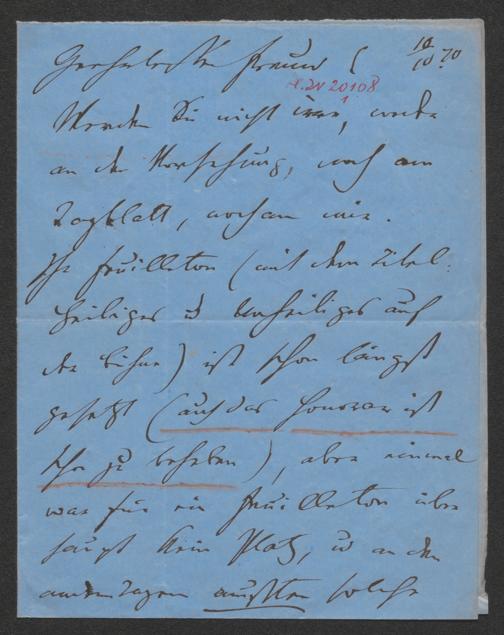 Geehrtester Freund!
10/10 70
I.N 20108
Werden Sie nicht irre, weder
an der Vorsehung, noch am
Tagblatt, noch an mir.
Ihr Feuilleton (mit dem Titel:
Heiliges u Unheiliges auf
der Bühne) ist schon längst
gesetzt (auch das Honorar ist
schon zu beheben), aber einmal
war für ein Feuilleton über
haupt kein Platz, u an den
andern Tagen mußten solche